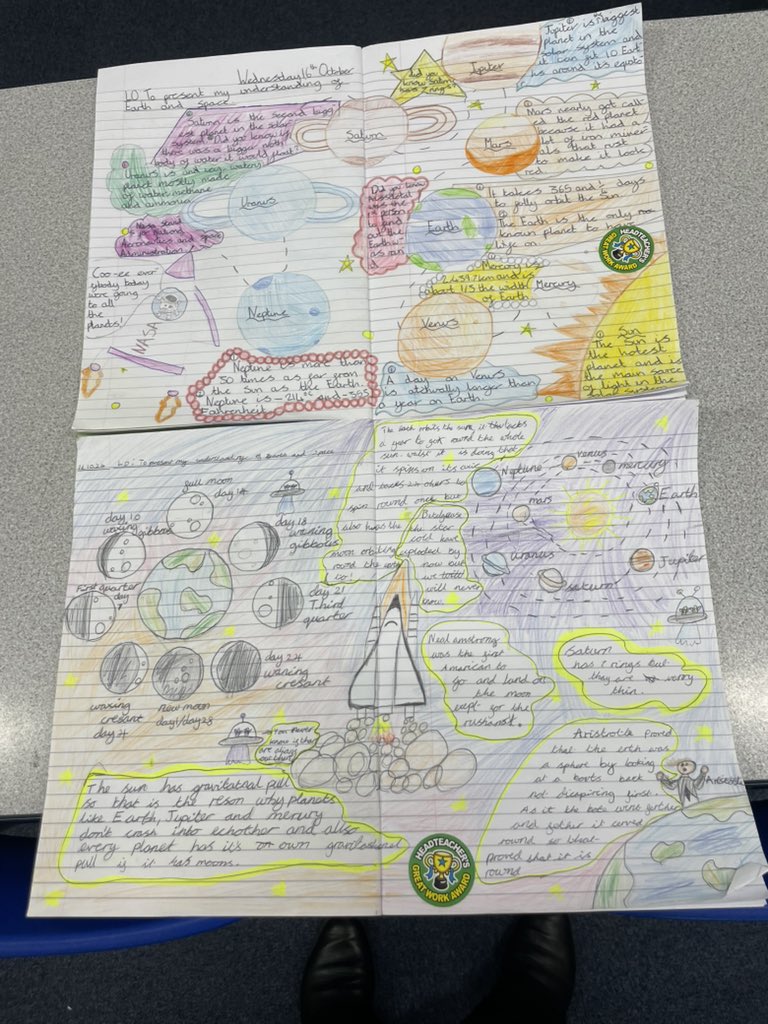 Wednesday 16th October
LO To present my understanding of
Earth and space
Saturn is the second bigg
est planet in the solar
system. Did you know if
there was a bigger
body of water it would float?
Uranus is and very watery
planet mostly made
of water methane
and ammonia
Nasa stand
for National
Aeronautics and space
Administration!
Coo-ee ever
ybody today
were going
to all
the
planets!
NASA
Saturn
Uranus
Neptune
Neptune is more than
30 times as far from
the sun as the Earth.
Neptune is -214°c and -353
Fahrenheit
Did you
know Saturn
has 7 rings?
Jupiter
Jupiter is biggest
planet in the
solar system and
it can fit 10 Eart
hs around its equato
Mars
Mars nearly got call
ed the red planet
because it had a
lot of iron miner
als that rust
to make it look
red.
Did you know
was the
person
to find
out the
Earth
was roun
d
Earth
It takes 365 and 1/4 days
to fully orbit the Sun
The Earth is the only
known planet to
life on.
HEADTEACHER'S
GREAT WORK AWARD
Mercury is
2,439.7km and is
about 1/3 the width
of Earth
Mercury
Venus
A day on Venus
is actually longer than
a year on Earth.
Sun
The Sun is
the hotest
planet and is
the main sorce
of light in the
LO: To present my understanding of Earth and space
full moon
day 14
day 10
waxing
gibbous
day 18
waning
gibbous
First quarter
day 7
day 21
Third
quarter
day 24
waning
cresant
waxing
cresant
day 4
new moon
day1/day28
you never
know if ther
are aliens
out there
The sun has gravitatnal pull
so that is the reson why planets
like Earth, Jupiter and mercury
don't crash into echother and also
every planet has it's own gravitashonal
pull if it has moons.
The Earth orbits the sun, it thakes
a year to gok round the whole
sun. whilst it is doing that
it spins on its axis
and tackes 24 others to
spin round once but
also has the
moon orbiting
round the
to!
the star
cold have
exploded by
now but
we will
will never
know.
Neptune
venus
mercury
Earth
mars
Jupiter
uranus
saturn
Neal amstrong
was the first
American to
go and land on
the moon
exept for the
rushans.
Saturn
has 7 rings but
they are verry
thin.
Aristotle proved
that the erth was
a sphere by looking
at a boats back
not disapiring first.
As it the boat went further
and futher it curved
round so that
proved that it is
round
HEADTEACHER'S
GREAT WORK AWARD